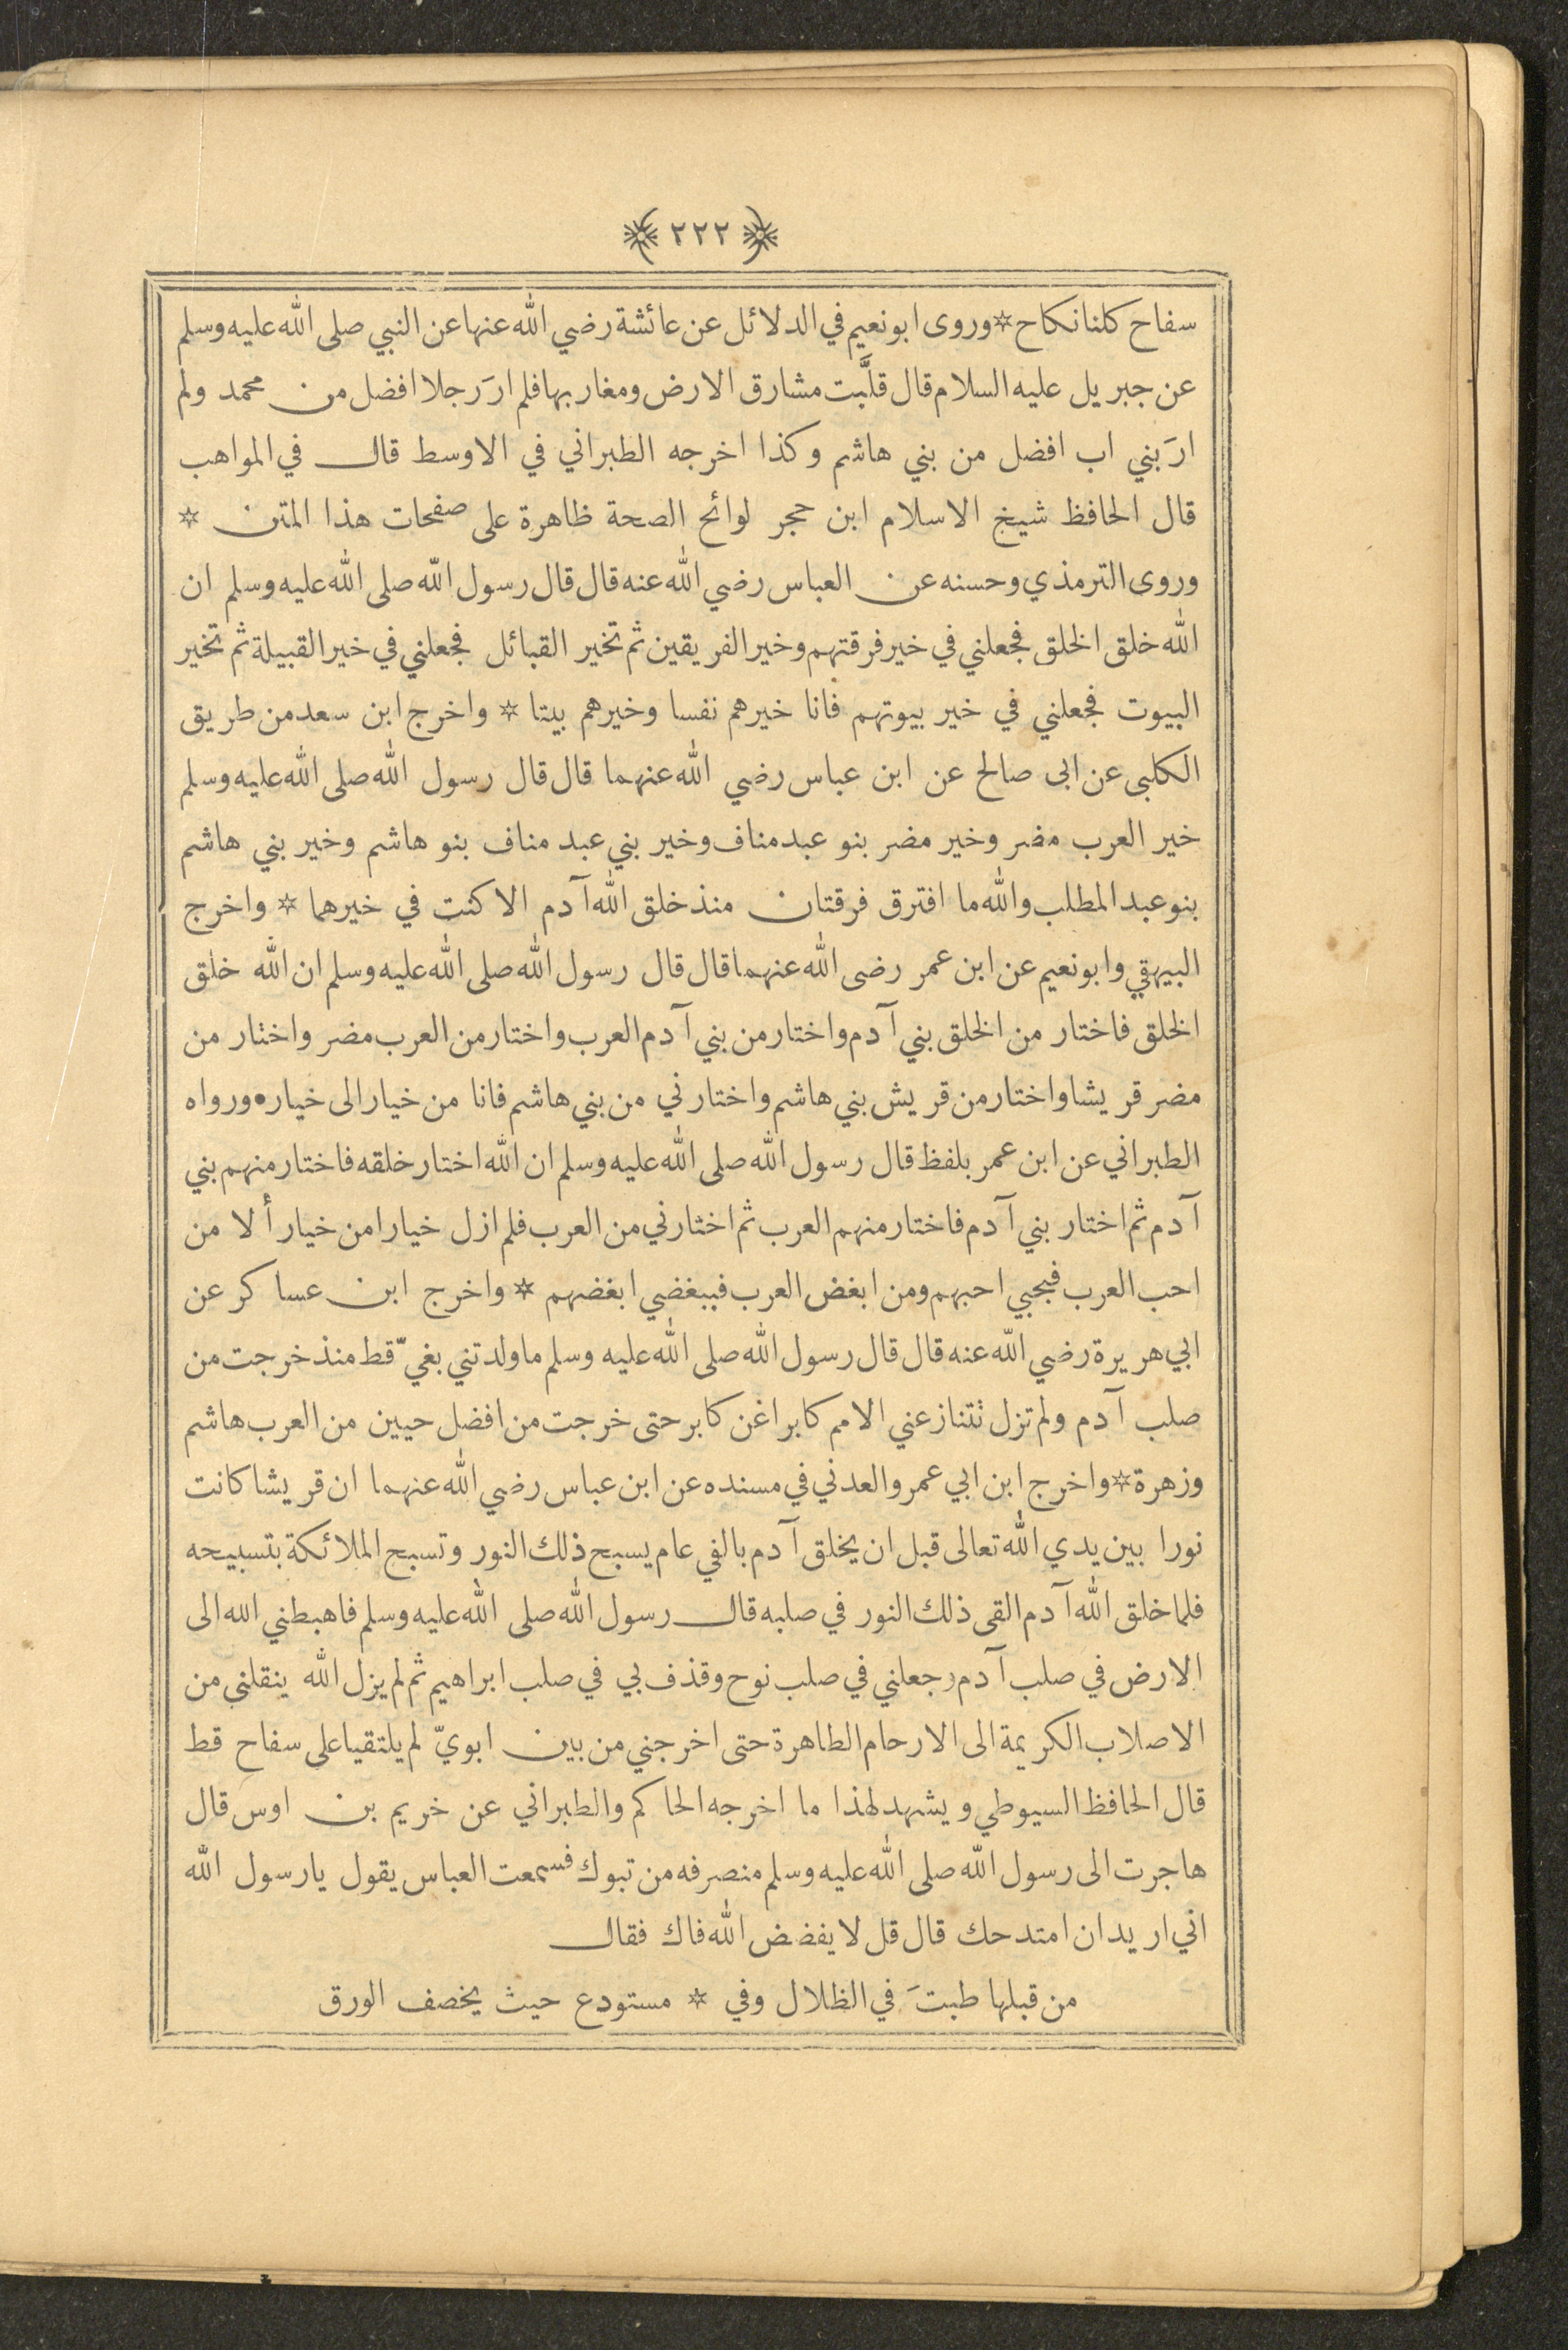 ﴿ ٢٢٢ ﴾
سفاح كلنا نكاح * وروى ابو نعيم في الدلائل عن عائشة رضي الله عنها عن النبي صلى الله عليه وسلم
عن جبريل عليه السلام قال قلَّبت مشارق الارض ومغاربها فلم ارَ رجلا افضل من محمد ولم
ارَ بني اب افضل من بني هاشم وكذا اخرجه الطبراني في الاوسط قال في المواهب
قال الحافظ شيخ الاسلام ابن حجر لوائح الصحة ظاهرة على صفحات هذا المتن *
وروى الترمذي وحسنه عن العباس رضي الله عنه قال قال رسول الله صلى الله عليه وسلم ان
الله خلق الخلق فجعلني في خير فرقتهم وخير الفريقين ثم تخير القبائل فجعلني في خير القبيلة ثم تخير
البيوت فجعلني في خير بيوتهم فانا خيرهم نفسا وخيرهم بيتا * واخرج ابن سعد من طريق
الكلبى عن ابى صالح عن ابن عباس رضي الله عنهما قال قال رسول الله صلى الله عليه وسلم
خير العرب مضر وخير مضر بنو عبد مناف وخير بني عبد مناف بنو هاشم وخير بني هاشم
بنو عبد المطلب والله ما افترق فرقتان منذ خلق الله آدم الا كنت في خيرهما * واخرج
البيهقي وابو نعيم عن ابن عمر رضى الله عنهما قال قال رسول الله صلى الله عليه وسلم ان الله خلق
الخلق فاختار من الخلق بني آدم واختار من بني آدم العرب واختار من العرب مضر واختار من
مضر قريشا واختار من قريش بني هاشم واختارني من بني هاشم فانا من خيار الى خيار • ورواه
الطبراني عن ابن عمر بلفظ قال رسول الله صلى الله عليه وسلم ان الله اختار خلقه فاختار منهم بني
آدم ثم اختار بني آدم فاختار منهم العرب ثم اختارني من العرب فلم ازل خيارا من خيار ألا من
احب العرب فبحبي احبهم ومن ابغض العرب فببغضي ابغضهم * واخرج ابن عساكر عن
ابي هريرة رضي الله عنه قال قال رسول الله صلى الله عليه وسلم ما ولدتني بغيّ قط منذ خرجت من
صلب آدم ولم تزل تتنازعني الامم كابرا عن كابر حتى خرجت من افضل حيين من العرب هاشم
وزهرة * واخرج ابن ابي عمر والعدني في مسنده عن ابن عباس رضي الله عنهما ان قريشا كانت
نورا بين يدي الله تعالى قبل ان يخلق آدم بالفي عام يسبح ذلك النور وتسبح الملائكة بتسبيحه
فلما خلق الله آدم القى ذلك النور في صلبه قال رسول الله صلى الله عليه وسلم فاهبطني الله الى
الارض في صلب آدم وجعلني في صلب نوح وقذف بي في صلب ابراهيم ثم لم يزل الله ينقلني من
الاصلاب الكريمة الى الارحام الطاهرة حتى اخرجني من بين ابويّ لم يلتقيا على سفاح قط
قال الحافظ السيوطي ويشهد لهذا ما اخرجه الحاكم والطبراني عن خريم بن اوس قال
هاجرت الى رسول الله صلى الله عليه وسلم منصرفه من تبوك فسمعت العباس يقول يا رسول الله
اني اريد ان امتدحك قال قل لا يفضض الله فاك فقال
من قبلها طبتَ في الظلال وفي * مستودع حيث يخصف الورق